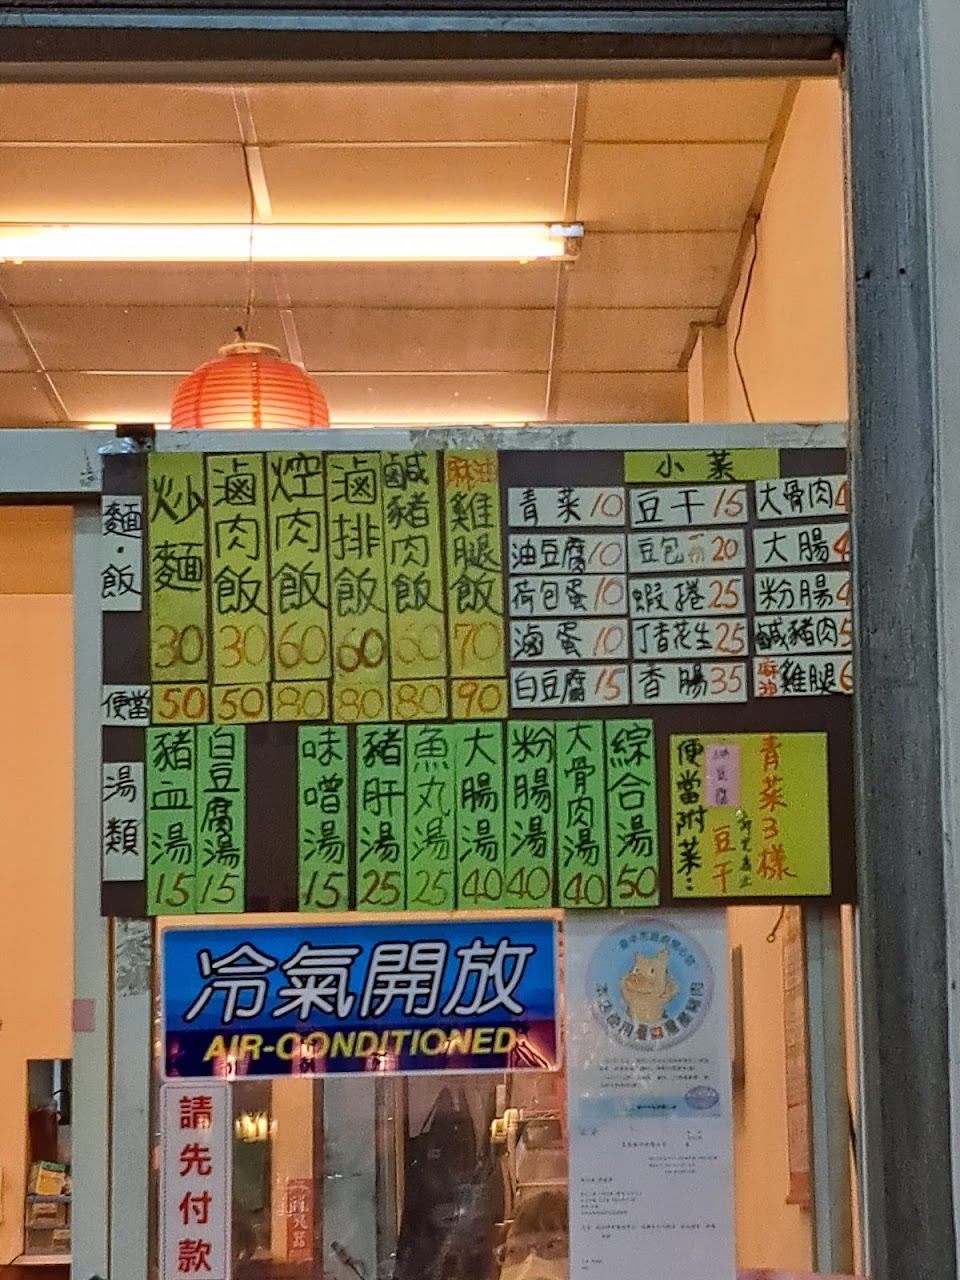 麵·飯
炒麵 30
滷肉飯 30
焢肉飯 60
滷排飯 60
鹹豬肉飯 60
麻油雞腿飯 70
便當 50 50 80 80 80 90
小菜
青菜10
油豆腐10
荷包蛋10
滷蛋10
白豆腐15
豆干15
豆包 20
蝦捲25
丁香花生25
香腸35
大骨肉4
大腸4
粉腸4
鹹豬肉5
麻油雞腿6
湯類
豬血湯 15
白豆腐湯 15
味噌湯 15
豬肝湯 25
魚丸湯 25
大腸湯 40
粉腸湯 40
大骨肉湯 40
綜合湯 50
青菜3樣
豆干
便當附菜:
冷氣開放
AIR-CONDITIONED
請先付款